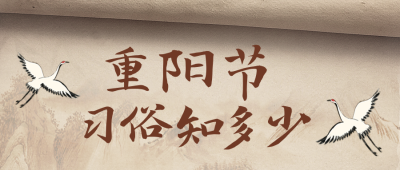 重阳节
习俗知多少